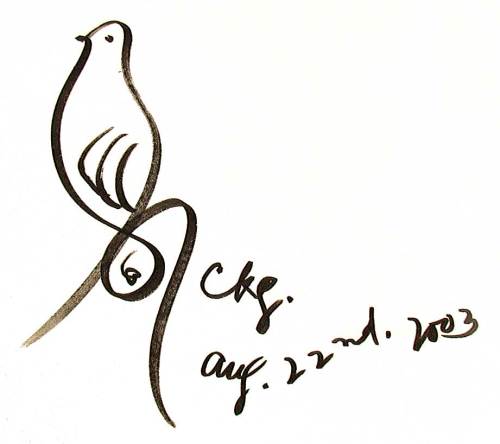 Ckg.
Aug. 22nd. 2003